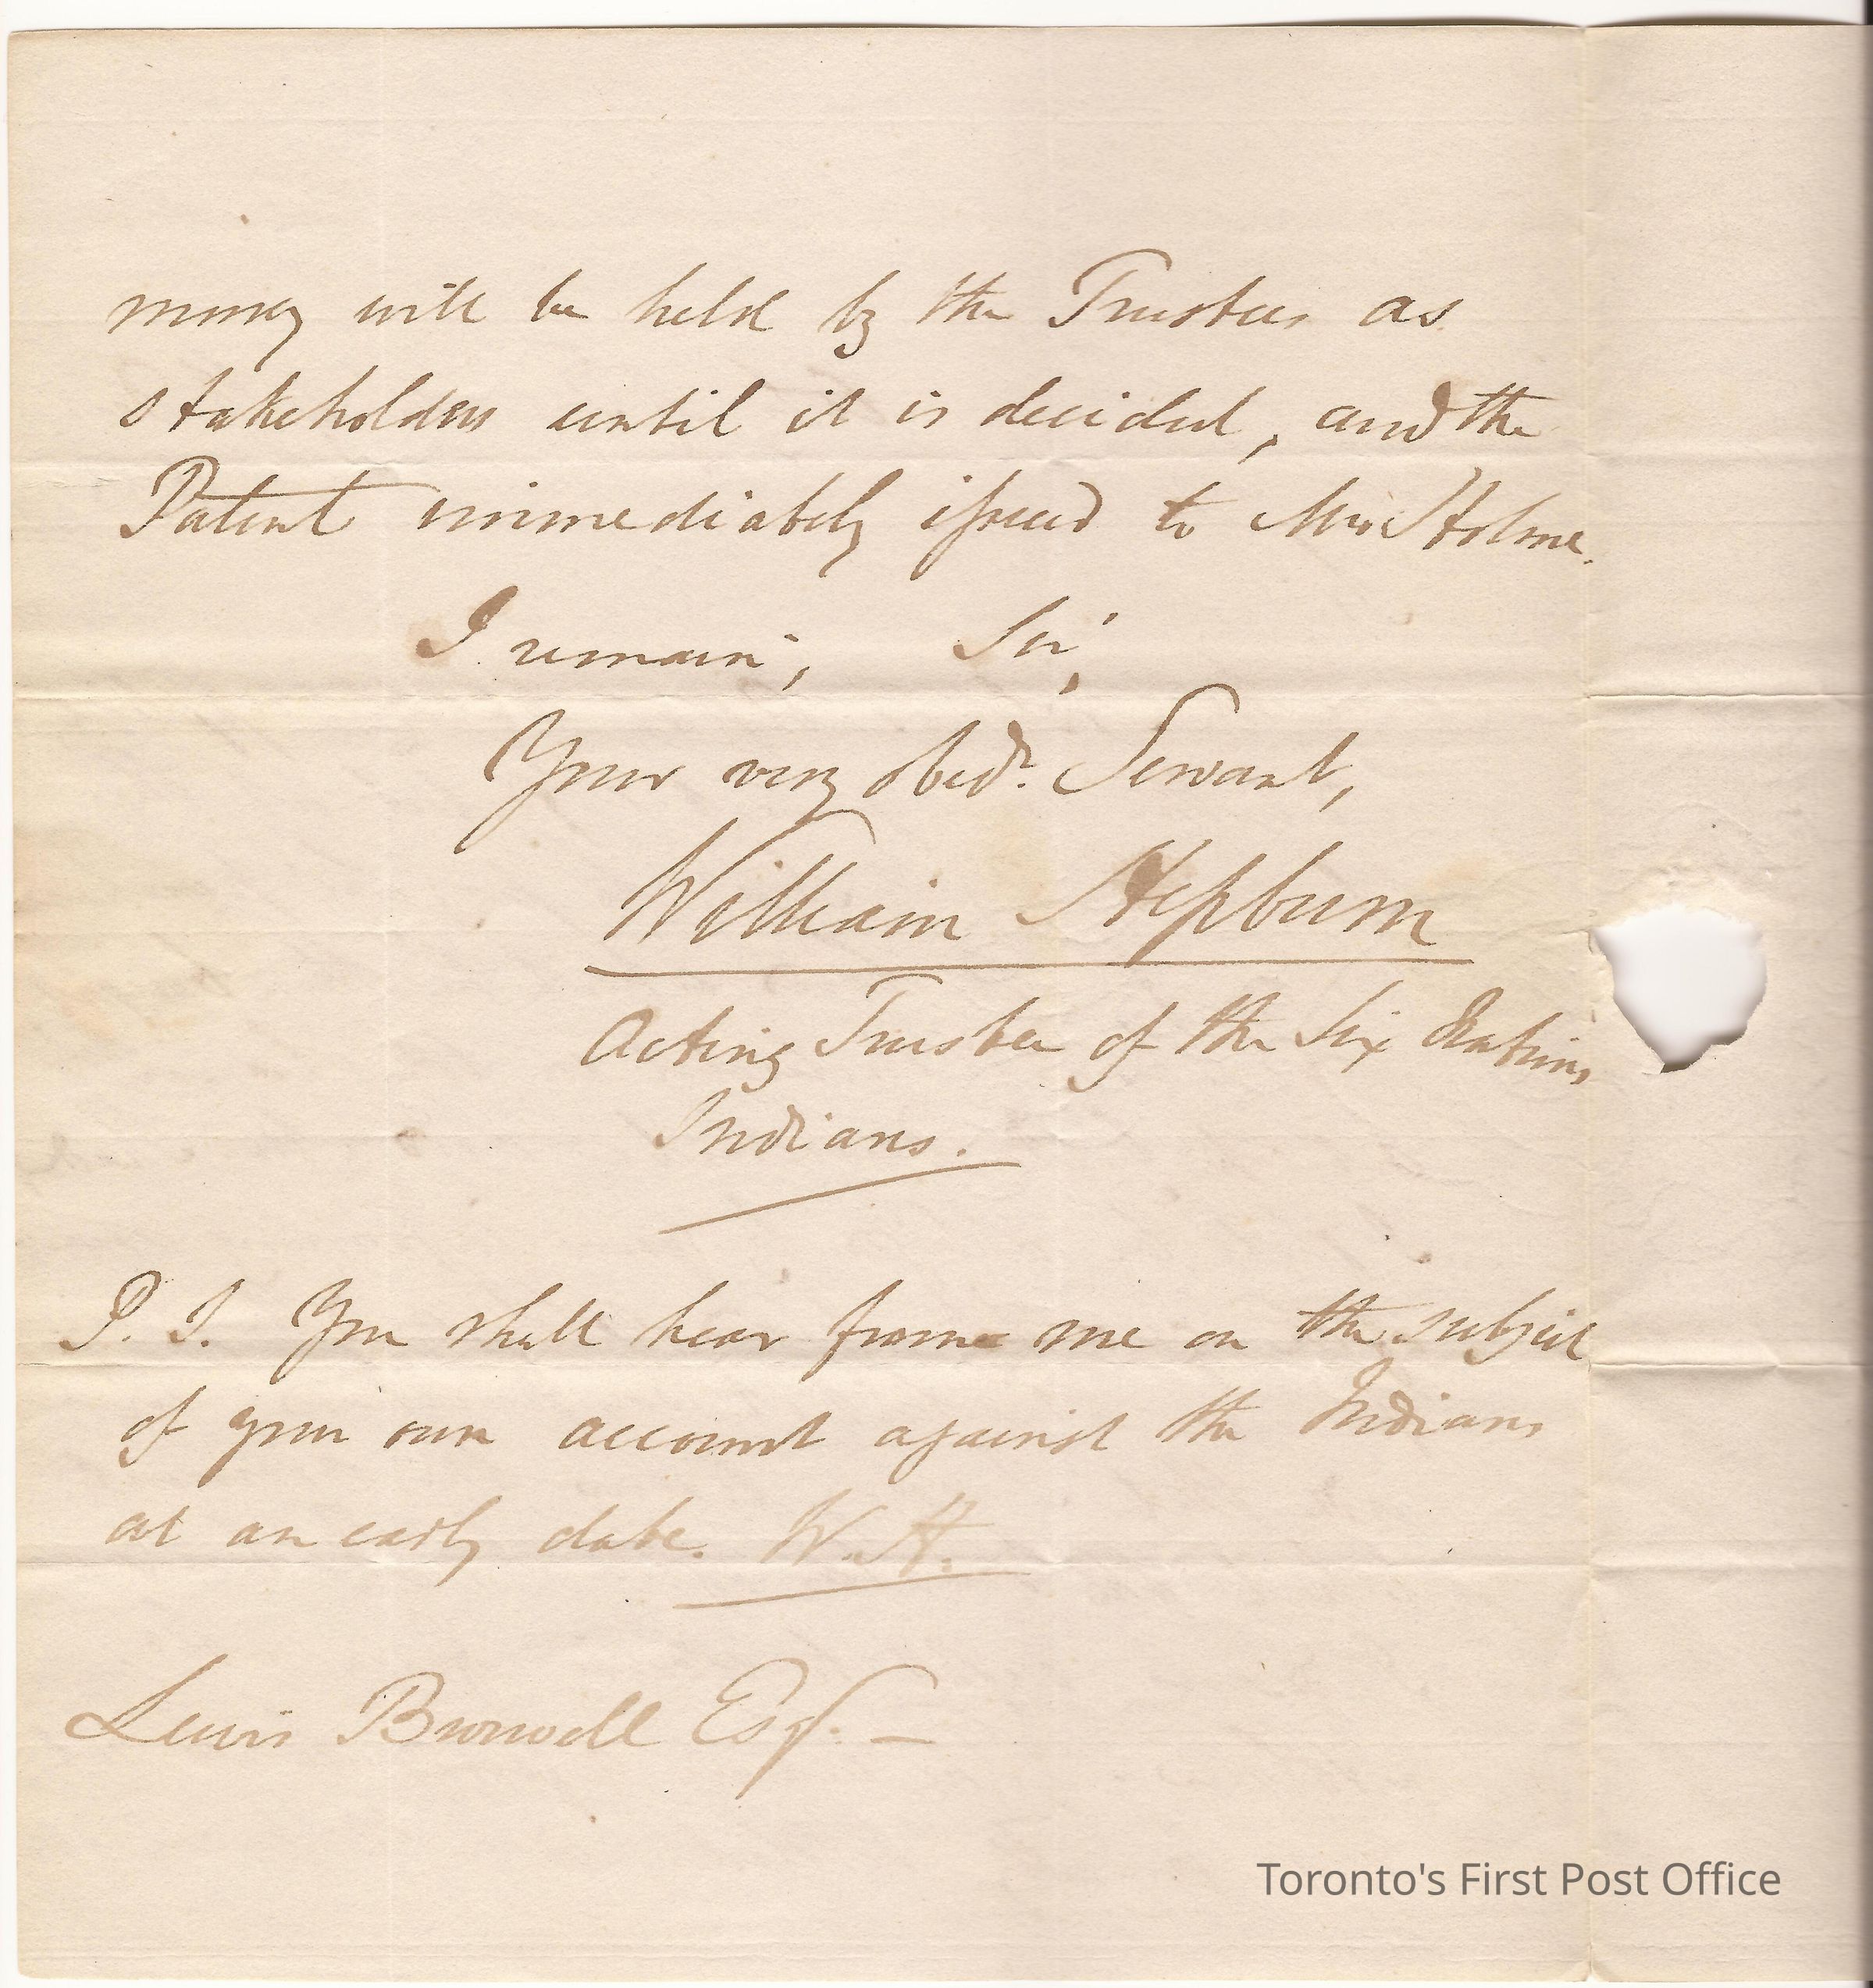 money will be held by the Trustees as
stakeholders until it is decided, and the
Patent immediately issued to Mrs Holme.
I remain, Sir,
Your very obedt. Servant,
William Hepburn
Acting Trustee of the Six Nations
Indians.
P. S. You shall hear from me on the subject
of your own account against the Indians
at an early date. W. H.
Lewis Burwell Esqr. —
Toronto's First Post Office